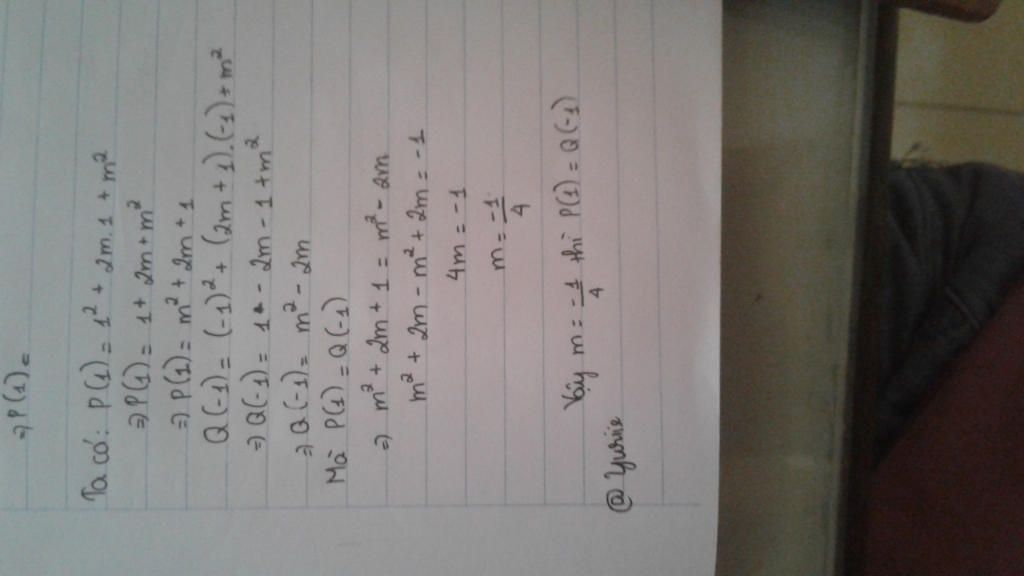 => P(1) =
Ta có: P(1) = 1² + 2m.1 + m²
=> P(1) = 1 + 2m + m²
=> P(1) = m² + 2m + 1
Q(-1) = (-1)² + (2m + 1).(-1) + m²
=> Q(-1) = 1 - 2m - 1 + m²
=> Q(-1) = m² - 2m
Mà P(1) = Q(-1)
=> m² + 2m + 1 = m² - 2m
m² + 2m - m² + 2m = -1
4m = -1
m = -1/4
Vậy m = -1/4 thì P(1) = Q(-1)
@ Yuriie